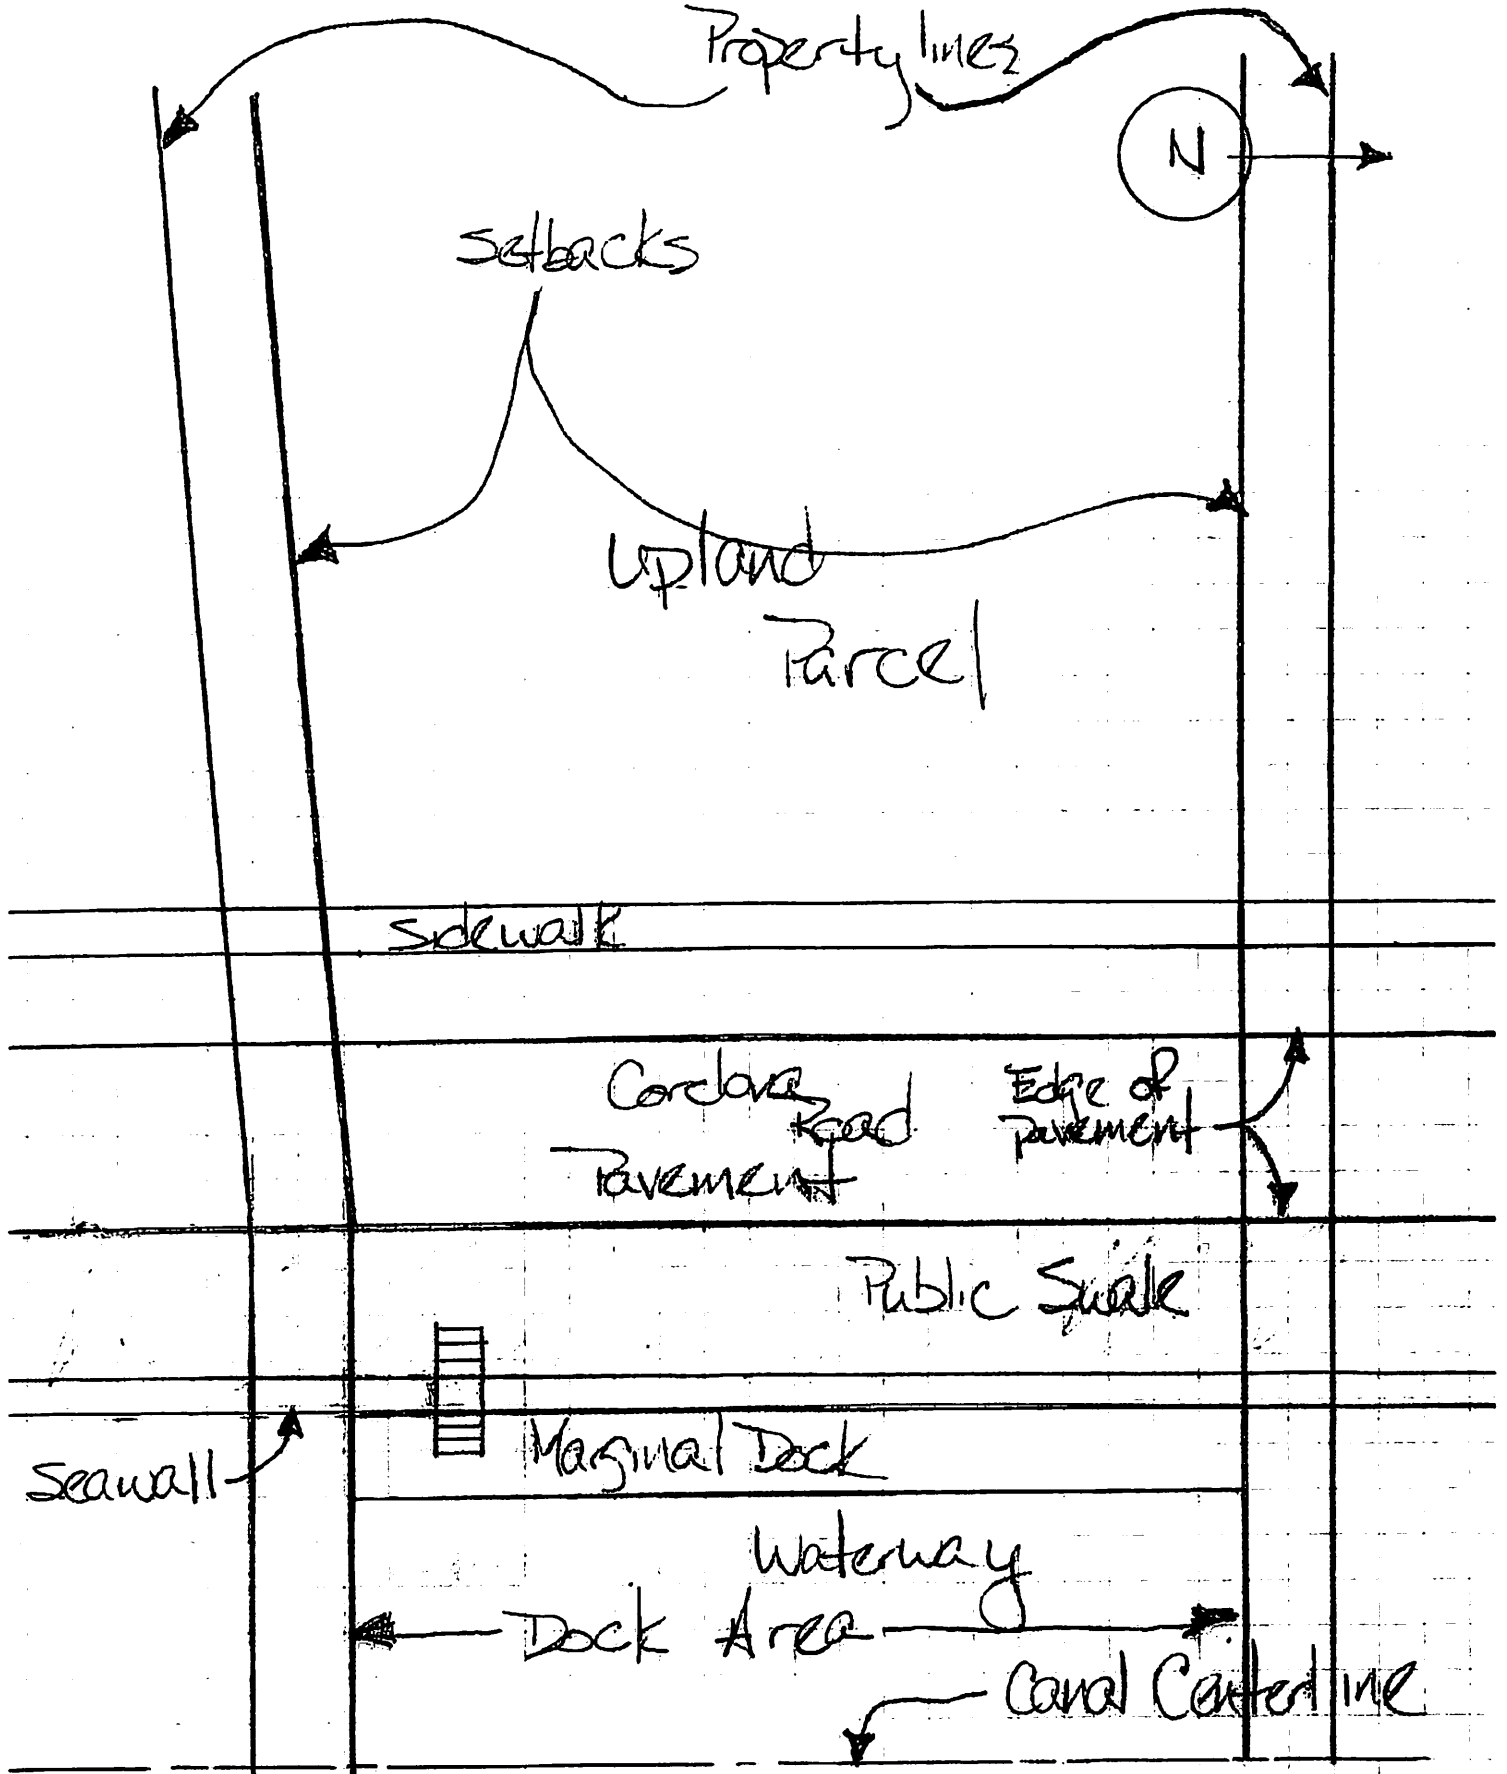 Property lines
N
Setbacks
Upland
Parcel
Sidewalk
Cordova
Road
Pavement
Edge of
Pavement
Public Swale
Seawall
Marginal Dock
Waterway
Dock Area
Canal Centerline